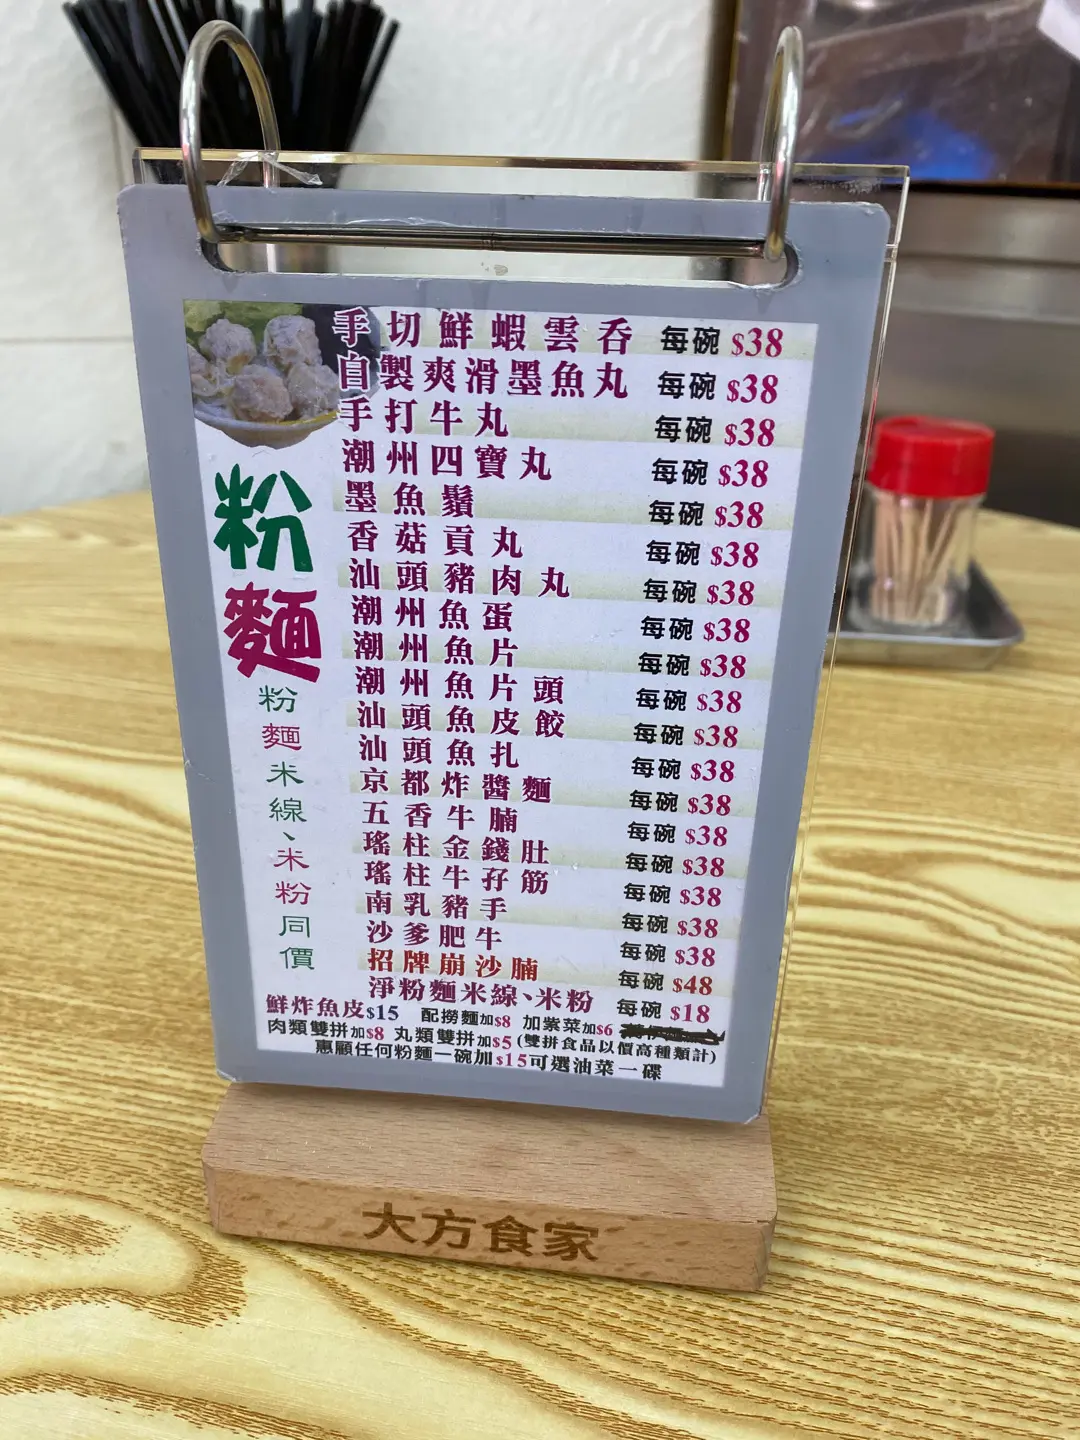 手切鮮蝦雲吞 每碗 $38
自製爽滑墨魚丸 每碗 $38
手打牛丸 每碗 $38
潮州四寶丸 每碗 $38
墨魚鬚 每碗 $38
香菇貢丸 每碗 $38
汕頭豬肉丸 每碗 $38
潮州魚蛋 每碗 $38
潮州魚片 每碗 $38
潮州魚片頭 每碗 $38
汕頭魚皮餃 每碗 $38
汕頭魚扎 每碗 $38
京都炸醬麵 每碗 $38
五香牛腩 每碗 $38
瑤柱金錢肚 每碗 $38
瑤柱牛孖筋 每碗 $38
南乳豬手 每碗 $38
沙爹肥牛 每碗 $38
招牌崩沙腩 每碗 $48
淨粉麵米線、米粉 每碗 $18
粉麵
粉麵米線、米粉同價
鮮炸魚皮$15 配撈麵加$8 加紫菜加$6
肉類雙拼加$8 丸類雙拼加$5 (雙拼食品以價高種類計)
惠顧任何粉麵一碗加$15可選油菜一碟
大方食家